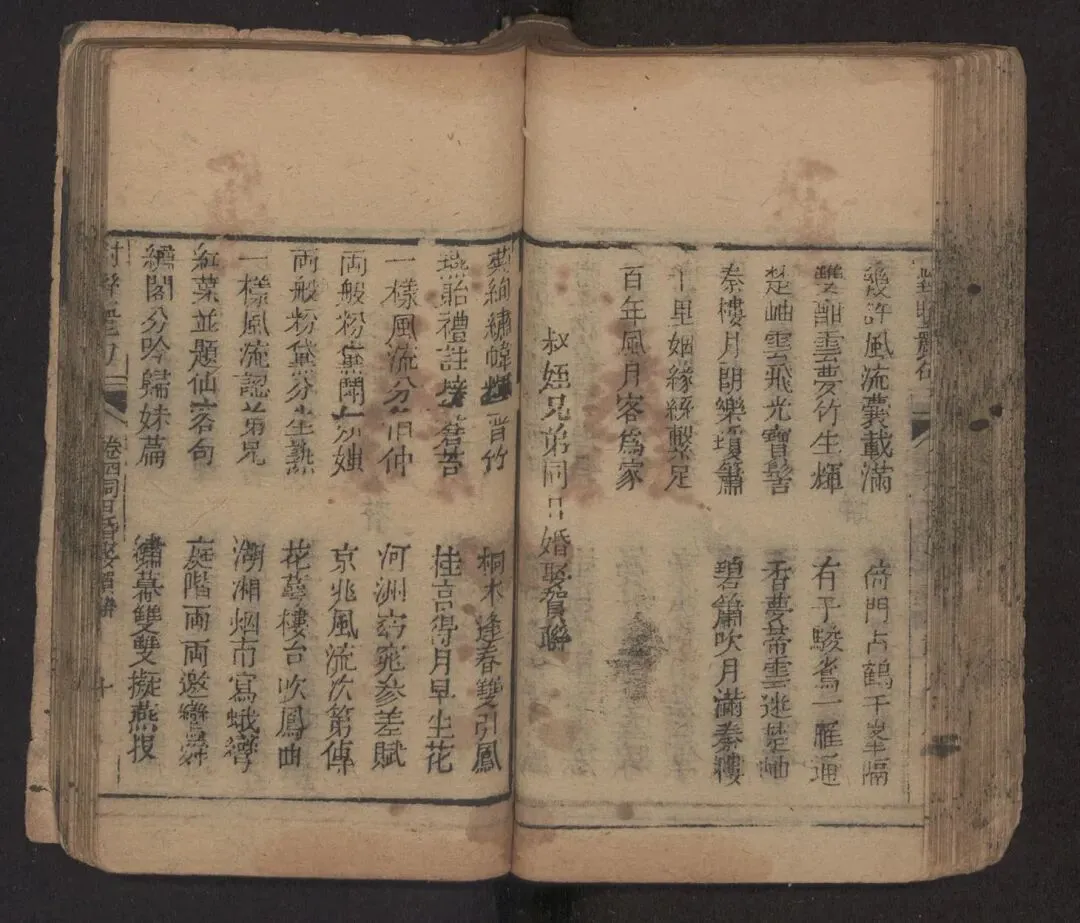 幾許風流囊載滿
倚門占鶴千
雙酣雲夢竹生輝
有子駿鸞一雁通
楚岫雲飛光寶髻
香夢帶雲迷楚岫
秦樓月朗樂瓊簫
碧簫吹月滿秦樓
千里姻緣絲繫足
百年風月客為家
叔姪兄弟同日婚娶賀聯
絢繡幃 晋竹
桐木逢春雙引鳳
燕貽禮註
桂宫得月早生花
一樣風流分伯仲
河洲窈窕參差賦
両般粉黛
京兆風流次第傳
両般粉黛分
花萼樓台吹鳳曲
一樣風流認弟兄
湖湘烟雨寫蛾彎
紅葉並題仙客句
庭階両両邀鸞舞
繡閣分吟歸妹篇
繡幕雙雙擬燕投
卷四同日婚娶賀聯
十